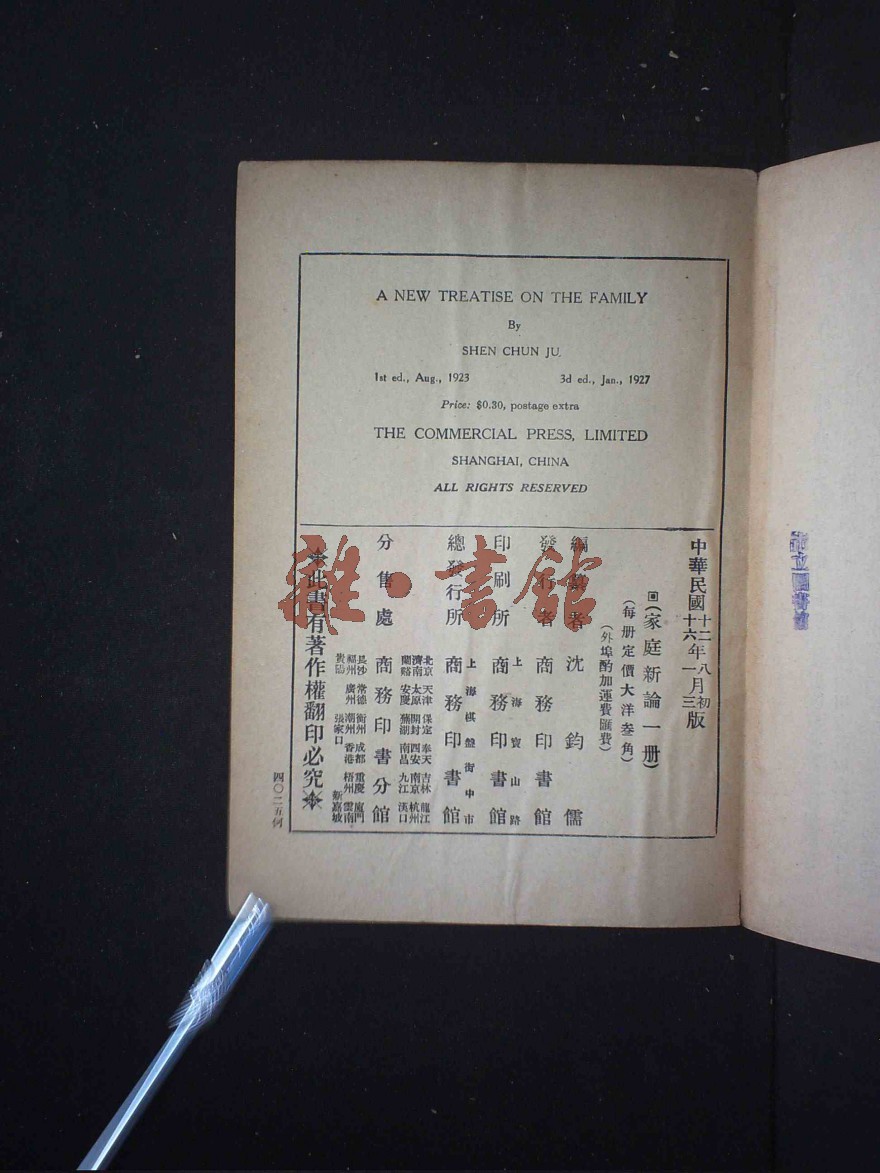 A NEW TREATISE ON THE FAMILY
By
SHEN CHUN JU
1st ed., Aug., 1923 3d ed., Jan., 1927
Price: $0.30, postage extra
THE COMMERCIAL PRESS, LIMITED
SHANGHAI, CHINA
ALL RIGHTS RESERVED
中華民國十二年八月初版
十六年一月三版
(家庭新論一册)
(每册定價大洋叁角)
(外埠酌加運費匯費)
編纂者 沈鈞儒
發行者 商務印書館
上海寶山路
印刷所 商務印書館
上海棋盤街中市
總發行所 商務印書館
北京 天津 保定 奉天 吉林 龍江
濟南 太原 開封 西安 南京 杭州
蘭谿 安慶 蕪湖 南昌 九江 漢口
分售處 商務印書分館
長沙 常德 衡州 成都 重慶 廈門
福州 廣州 潮州 香港 梧州 雲南
貴陽 張家口 新嘉坡
此書有著作權翻印必究
四〇二五何
雜·書館
立圖書館